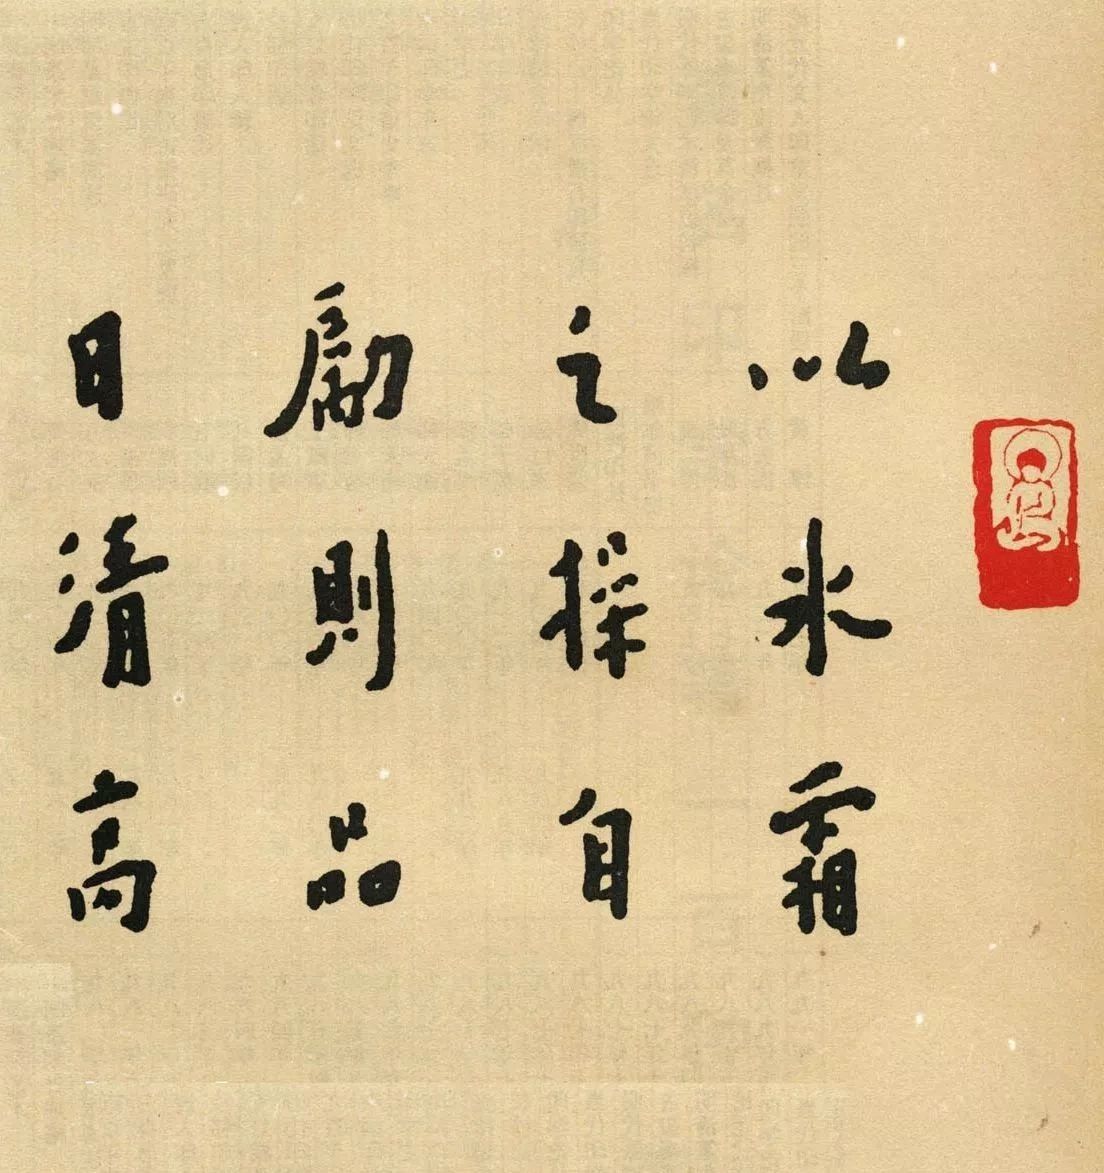 以冰霜
之操自
勵則品
日清高